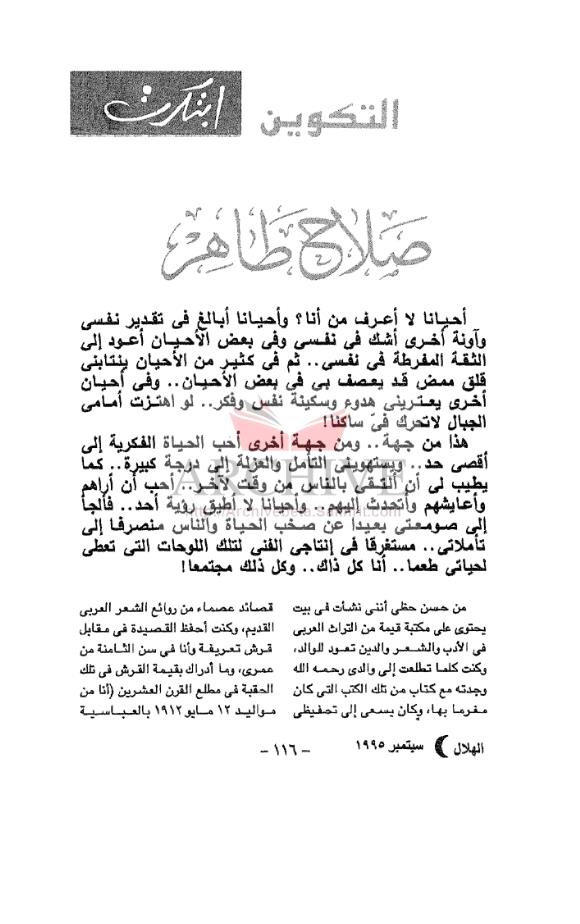 التكوين
صلاح طاهر
أحيانا لا أعرف من أنا؟ وأحيانا أبالغ فى تقدير نفسى
وآونة أخرى أشك فى نفسى وفى بعض الأحيان أعود إلى
الثقة المفرطة فى نفسى.. ثم فى كثير من الأحيان ينتابنى
قلق ممض قد يعصف بى فى بعض الأحيان.. وفى أحيان
أخرى يعترينى هدوء وسكينة نفس وفكر.. لو اهتزت أمامى
الجبال لاتحرك فىّ ساكنا!
هذا من جهة.. ومن جهة أخرى أحب الحياة الفكرية إلى
أقصى حد.. ويستهوينى التأمل والعزلة إلى درجة كبيرة.. كما
يطيب لى أن ألتقى بالناس من وقت لآخر.. أحب أن أراهم
وأعايشهم وأتحدث إليهم.. وأحيانا لا أطيق رؤية أحد.. فألجأ
إلى صومعتى بعيدا عن صخب الحياة والناس منصرفا إلى
تأملاتى.. مستغرقا فى إنتاجى الفنى لتلك اللوحات التى تعطى
لحياتى طعما.. أنا كل ذاك.. وكل ذلك مجتمعا!
من حسن حظى أننى نشأت فى بيت
يحتوى على مكتبة قيمة من التراث العربى
فى الأدب والشعر والدين تعود للوالد،
وكنت كلما تطلعت إلى والدى رحمه الله
وجدته مع كتاب من تلك الكتب التى كان
مغرما بها، وكان يسعى إلى تحفيظى
قصائد عصماء من روائع الشعر العربى
القديم، وكنت أحفظ القصيدة فى مقابل
قرش تعريفة وأنا فى سن الثامنة من
عمرى، وما أدراك بقيمة القرش فى تلك
الحقبة فى مطلع القرن العشرين (أنا من
مواليد ١٢ مايو ١٩١٢ بالعباسية
الهلال سبتمبر ١٩٩٥
- ١١٦ -
ARCHIVE